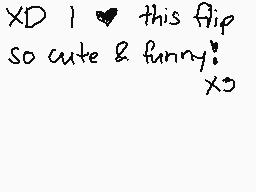 XD I ♥ this flip
so cute & funny!
X3